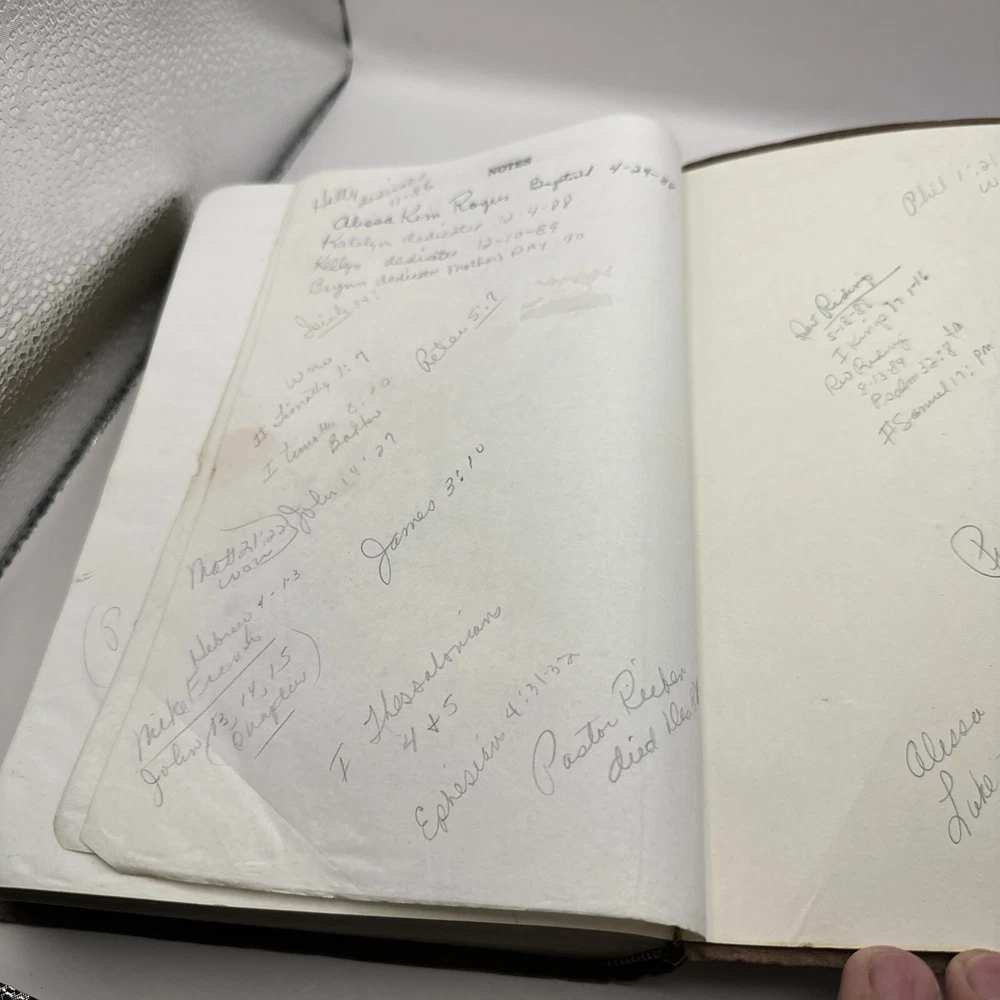 NOTES
Kelly dedicated
11-86
Alissa Kim Rogers Baptised 4-24-80
Katelyn dedicated 12 4-88
Kellyn dedicated 12-10-89
Brynn dedicated Mothers DAY 90
Peter 5:7
Wow
II Timothy 1:7
I Timoth 6:10
Bakker
John 14:27
Matt 21:22
wow
James 3:10
Hebrew 4-13
Mike French
John 13, 14, 15
Chapter
I Thessalonians
4 & 5
Ephesian 4:31-32
Pastor
died Dec
Phil 1:21
Rev Riding
I King
Rev Riding
8-13-89
Psalm 32:8 AM
II Samuel 17: PM
Alissa
Luke